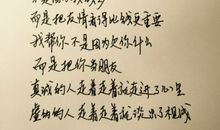 而是把友情看得比钱更重要
我帮你不是因为欠你什么
而是把你当朋友
真诚的人走着走着就走进了心里
虚伪的人走着走着就淡出了视线